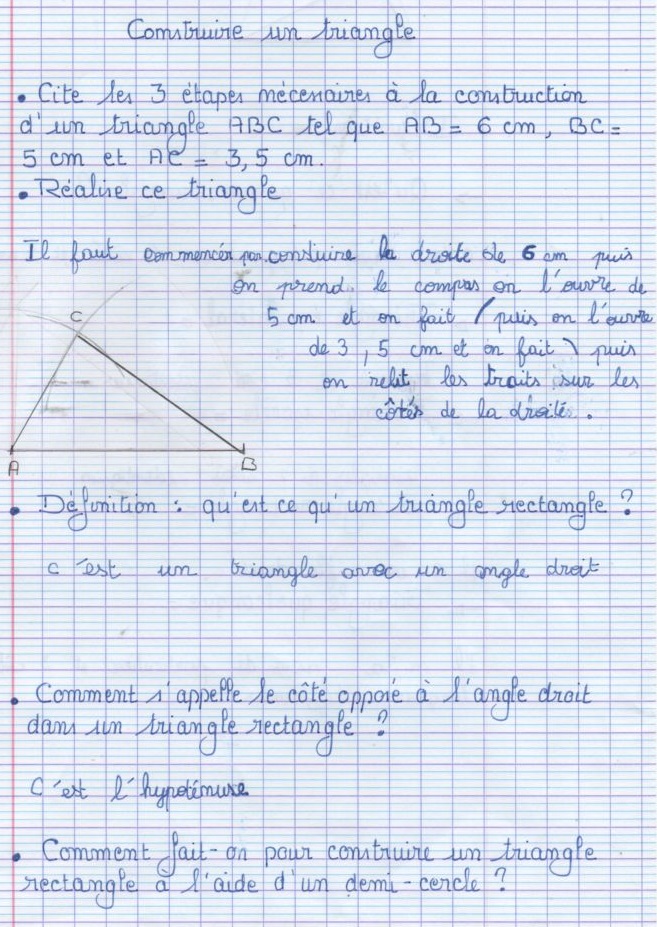 Construire un triangle
• Cite les 3 étapes nécessaires à la construction
d'un triangle ABC tel que AB = 6 cm, BC =
5 cm et AC = 3,5 cm.
• Réalise ce triangle
Il faut commencér par construire la droite de 6 cm puis
on prend le compas on l'ouvre de
5 cm et on fait ( puis on l'ouvre
de 3,5 cm et on fait ) puis
on relit les traits sur les
côtés de la droité.
C
A
B
• Définition : qu'est ce qu'un triangle rectangle ?
c'est un triangle avec un angle droit
• Comment s'appelle le côté opposé à l'angle droit
dans un triangle rectangle ?
C'est l'hypoténuse
• Comment fait-on pour construire un triangle
rectangle à l'aide d'un demi-cercle ?